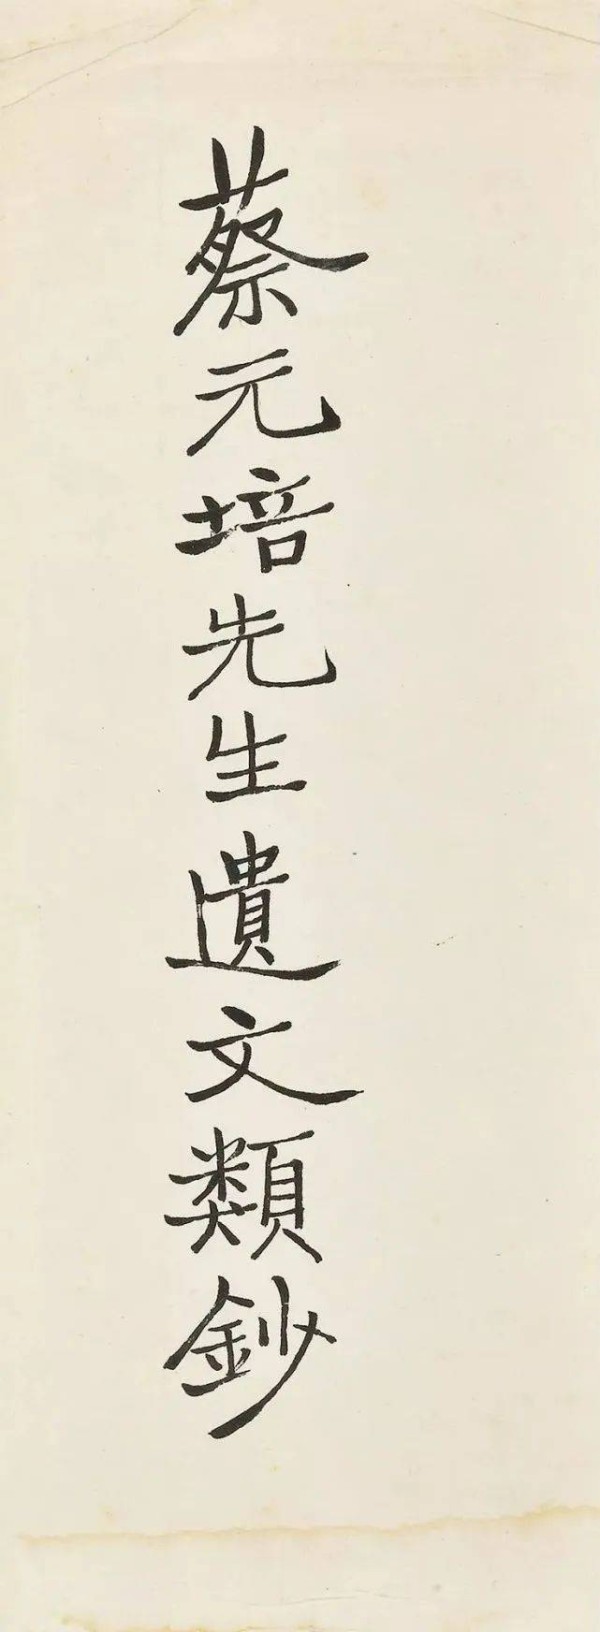 蔡元培先生遺文類鈔